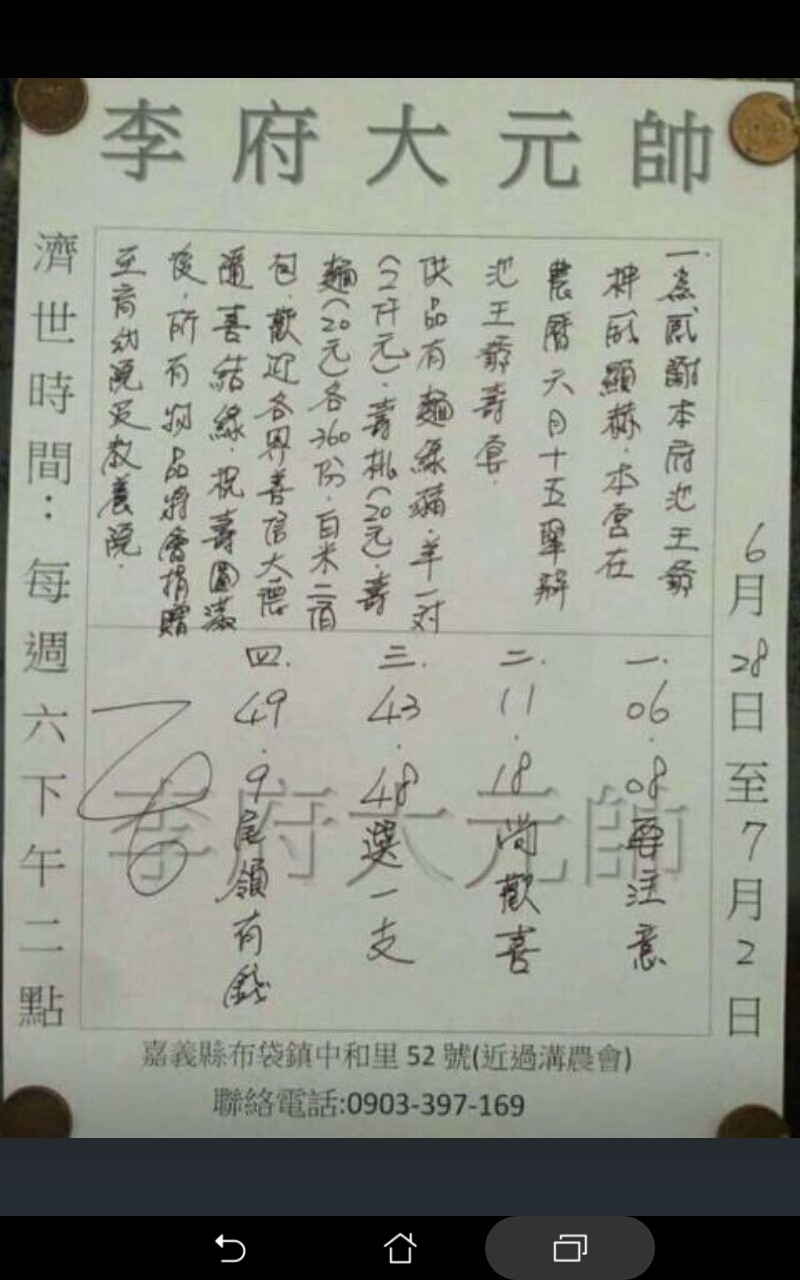 李府大元帥
6月28日至7月2日
一.為感謝本府池王爺
神威顯赫.本宮在
農曆六月十五舉辦
池王爺壽宴.
供品有麵線塔.羊一對
(2仟元).壽桃(20元).壽
麵(20元)各360份.白米二百
包.歡迎各界善信大德
隨喜結緣.祝壽圓滿
後.所有物品將會捐贈
至育幼院及教養院.
一.06.08要注意
二.11.18尚歡喜
三.43.48選一支
四.49.9尾領有錢
李府大元帥
濟世時間：每週六下午二點
嘉義縣布袋鎮中和里52號(近過溝農會)
聯絡電話:0903-397-169